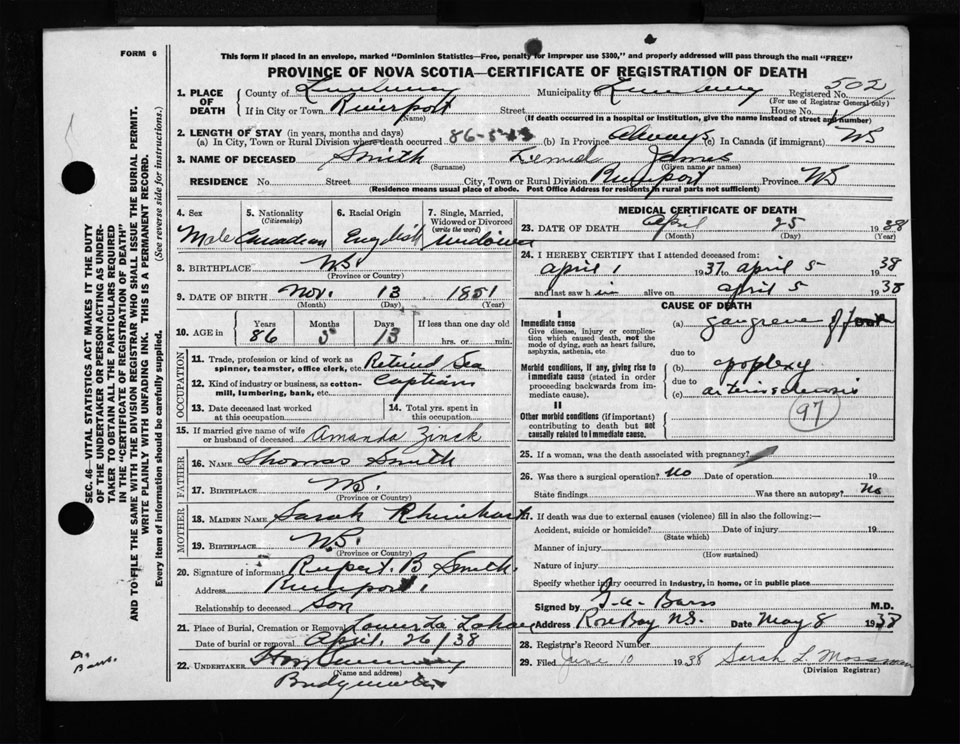 FORM 6
This form if placed in an envelope, marked "Dominion Statistics—Free, penalty for improper use $300," and properly addressed will pass through the mail "FREE"
PROVINCE OF NOVA SCOTIA—CERTIFICATE OF REGISTRATION OF DEATH
1. PLACE OF DEATH County of Lunenburg Municipality Lunenburg Registered No. 502
(For use of Registrar General only)
If in City or Town Riverport Street House No.
(Name) (If death occurred in a hospital or institution, give the name instead of street and number)
2. LENGTH OF STAY (in years, months and days)
(a) In City, Town or Rural Division where death occurred 86-5-13 (b) In Province Always (c) In Canada (if immigrant) NS
3. NAME OF DECEASED Smith James
(Surname) (Given name or names)
RESIDENCE No. Street City, Town or Rural Division Riverport Province NS
(Residence means usual place of abode. Post Office Address for residents in rural parts not sufficient)
4. Sex Male
5. Nationality (Citizenship) Canadian
6. Racial Origin English
7. Single, Married, Widowed or Divorced (write the word) widower
8. BIRTHPLACE NS.
(Province or Country)
9. DATE OF BIRTH Nov. 13 1851
(Month) (Day) (Year)
10. AGE in Years 86 Months 5 Days 13 If less than one day old hrs. or min.
OCCUPATION
11. Trade, profession or kind of work as spinner, teamster, office clerk, etc. Retired Sea
12. Kind of industry or business, as cotton-mill, lumbering, bank, etc. Captian
13. Date deceased last worked at this occupation
14. Total yrs. spent in this occupation
15. If married give name of wife or husband of deceased Amanda Zinck
FATHER
16. NAME Thomas Smith
17. BIRTHPLACE NS.
(Province or Country)
MOTHER
18. MAIDEN NAME Sarah Rhinhart
19. BIRTHPLACE NS.
(Province or Country)
20. Signature of informant Rupert. B Smith.
Address Riverport.
Relationship to deceased Son
21. Place of Burial, Cremation or Removal Lower La Have
Date of burial or removal April. 26/38
22. UNDERTAKER
(Name and address)
Bridgewater
MEDICAL CERTIFICATE OF DEATH
23. DATE OF DEATH April 25 1938
(Month) (Day) (Year)
24. I HEREBY CERTIFY that I attended deceased from:
April 1 1937 to April 5 1938
and last saw him alive on April 5 1938
CAUSE OF DEATH
I
Immediate cause
Give disease, injury or complication which caused death, not the mode of dying, such as heart failure, asphyxia, asthenia, etc.
(a) gangrene of foot
due to
Morbid conditions, if any, giving rise to immediate cause (stated in order proceeding backwards from immediate cause).
(b) apoplexy
due to
(c) arteriosclerosis
97
II
Other morbid conditions (if important) contributing to death but not causally related to immediate cause.
25. If a woman, was the death associated with pregnancy?
26. Was there a surgical operation? No Date of operation 19
State findings Was there an autopsy? No
27. If death was due to external causes (violence) fill in also the following:—
Accident, suicide or homicide? Date of injury 19
(State which)
Manner of injury
(How sustained)
Nature of injury
Specify whether injury occurred in industry, in home, or in public place
Signed by Barss M.D.
Address Rose Bay N.S. Date May 8 1938
28. Registrar's Record Number
29. Filed June 10 1938 Sarah L Mossman
(Division Registrar)
SEC. 46—VITAL STATISTICS ACT MAKES IT THE DUTY
OF THE UNDERTAKER OR PERSON ACTING AS UNDER-
TAKER TO OBTAIN ALL THE PARTICULARS REQUIRED
IN THE "CERTIFICATE OF REGISTRATION OF DEATH"
AND TO FILE THE SAME WITH THE DIVISION REGISTRAR WHO SHALL ISSUE THE BURIAL PERMIT.
WRITE PLAINLY WITH UNFADING INK. THIS IS A PERMANENT RECORD.
Every item of information should be carefully supplied. (See reverse side for instructions.)
Dr